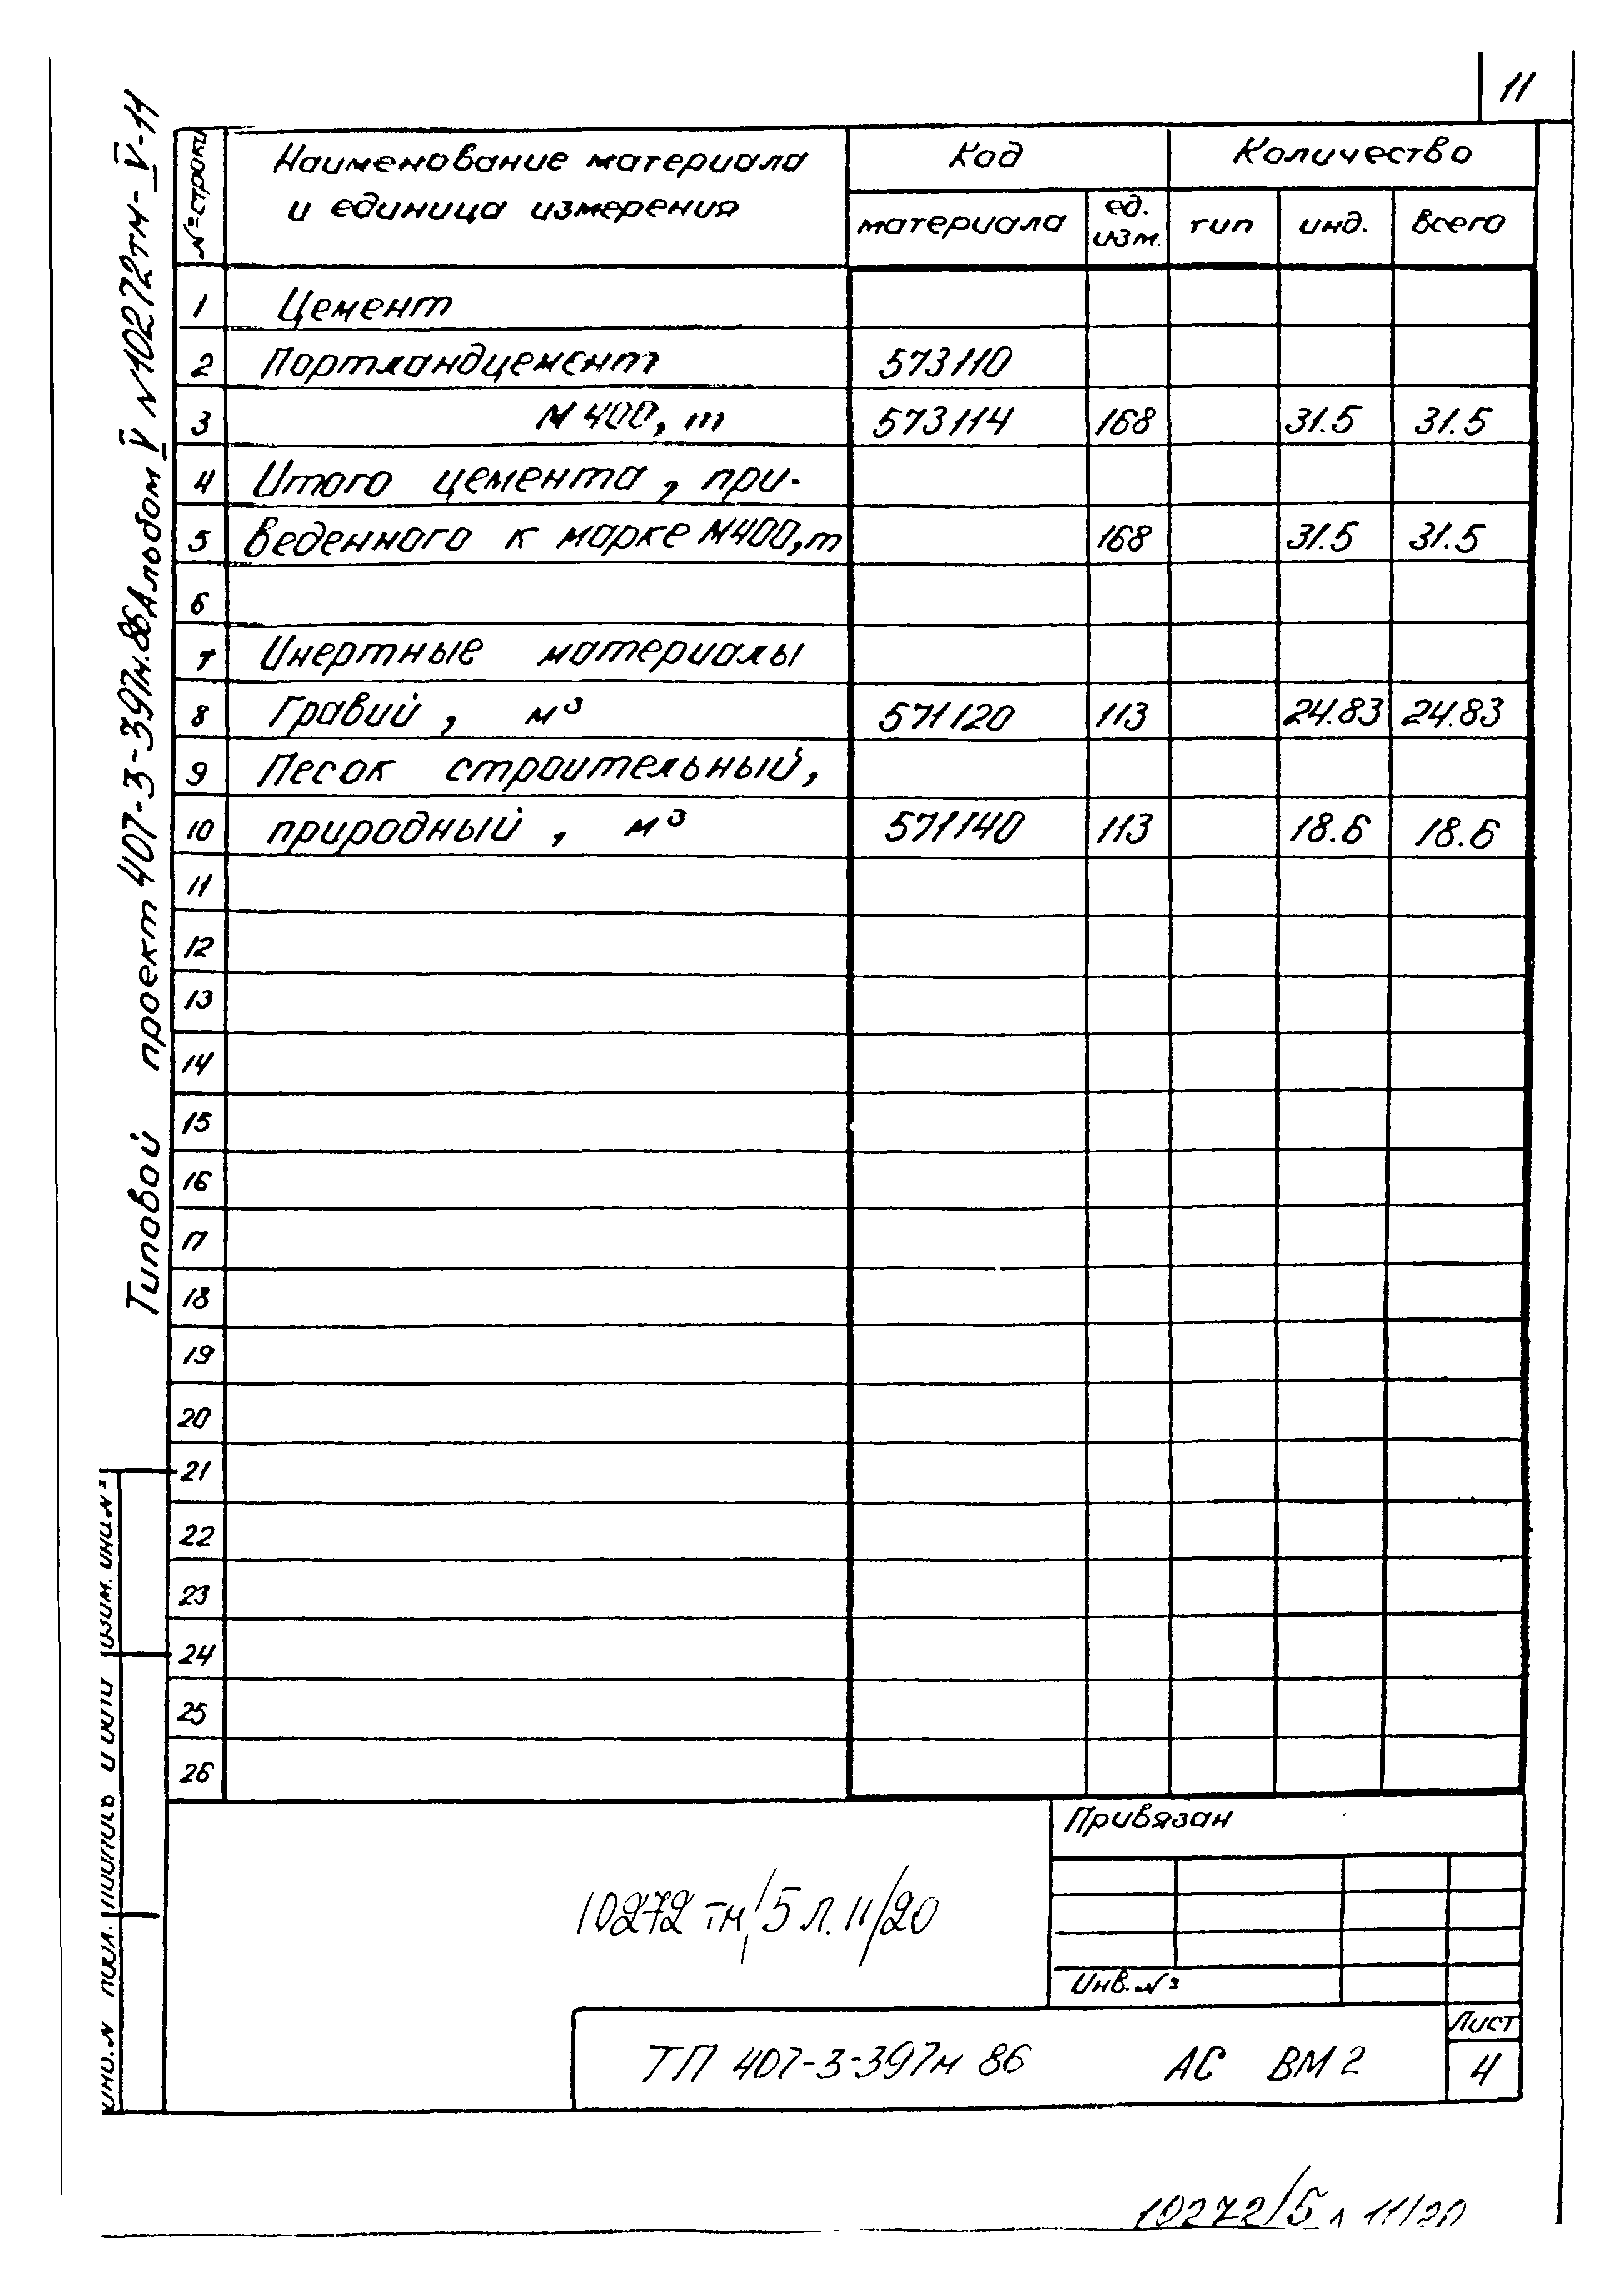 11
Типовой проект 407-3-397м.86 Альбом V N10272тм-V-11
N=строки
Наименование материала
и единица измерения
Код
Количество
материала
ед.
изм.
тип
инд.
всего
1 Цемент
2 Портландцемент 573110
3 М 400, т 573114 168 31.5 31.5
4 Итого цемента, при-
5 веденного к марке М400, т 168 31.5 31.5
6
7 Инертные материалы
8 Гравий, м³ 571120 113 24.83 24.83
9 Песок строительный,
10 природный, м³ 571140 113 18.6 18.6
11
12
13
14
15
16
17
18
19
20
21
22
23
24
25
26
Взам. инв. №
Подпись и дата
Инв. № подл.
Привязан
10272 тм/5 л. 11/20
Инв. №
ТП 407-3-397м 86 АС ВМ 2
Лист
4
10272/5 л 11/20